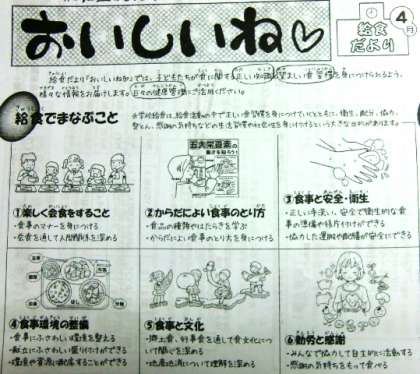 おいしいね♡
給食だより
4月
給食だより「おいしいね」では、子どもたちが食に関する正しい知識と望ましい食習慣を身につけられるよう、
様々な情報をお届けします。日々の健康管理にご活用ください。
給食でまなぶこと
学校給食は、給食活動の中で正しい食習慣を身につけていくとともに、衛生、配分、協力、
①楽しく会食をすること
・食事のマナーを身につける
・会食を通して人間関係を深める
五大栄養素の
働きを知ろう!
②からだによい食事のとり方
・食品の種類やはたらきを学ぶ
・からだによい食事のとり方を身につける
③食事と安全・衛生
・正しい手洗い、安全で衛生的な食
事の準備や後片付けができる
・協力した運搬や配膳が安全にできる
④食事環境の整備
・食事にふさわしい環境を整える
・献立にふさわしい盛り付けができる
・環境や資源に配慮することができる
⑤食事と文化
・郷土食、行事食を通して食文化につ
いて関心を深める
・地産地消について理解を深める
⑥勤労と感謝
・みんなで協力して自主的に活動する
・感謝の気持ちをもって食べる